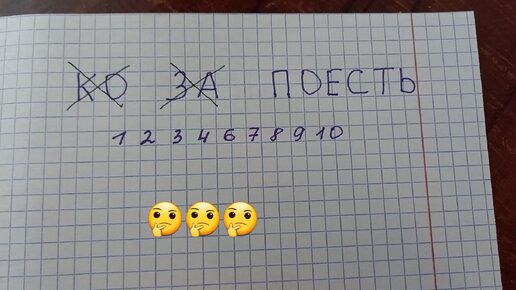 КО ЗА ПОЕСТЬ
1 2 3 4 6 7 8 9 10